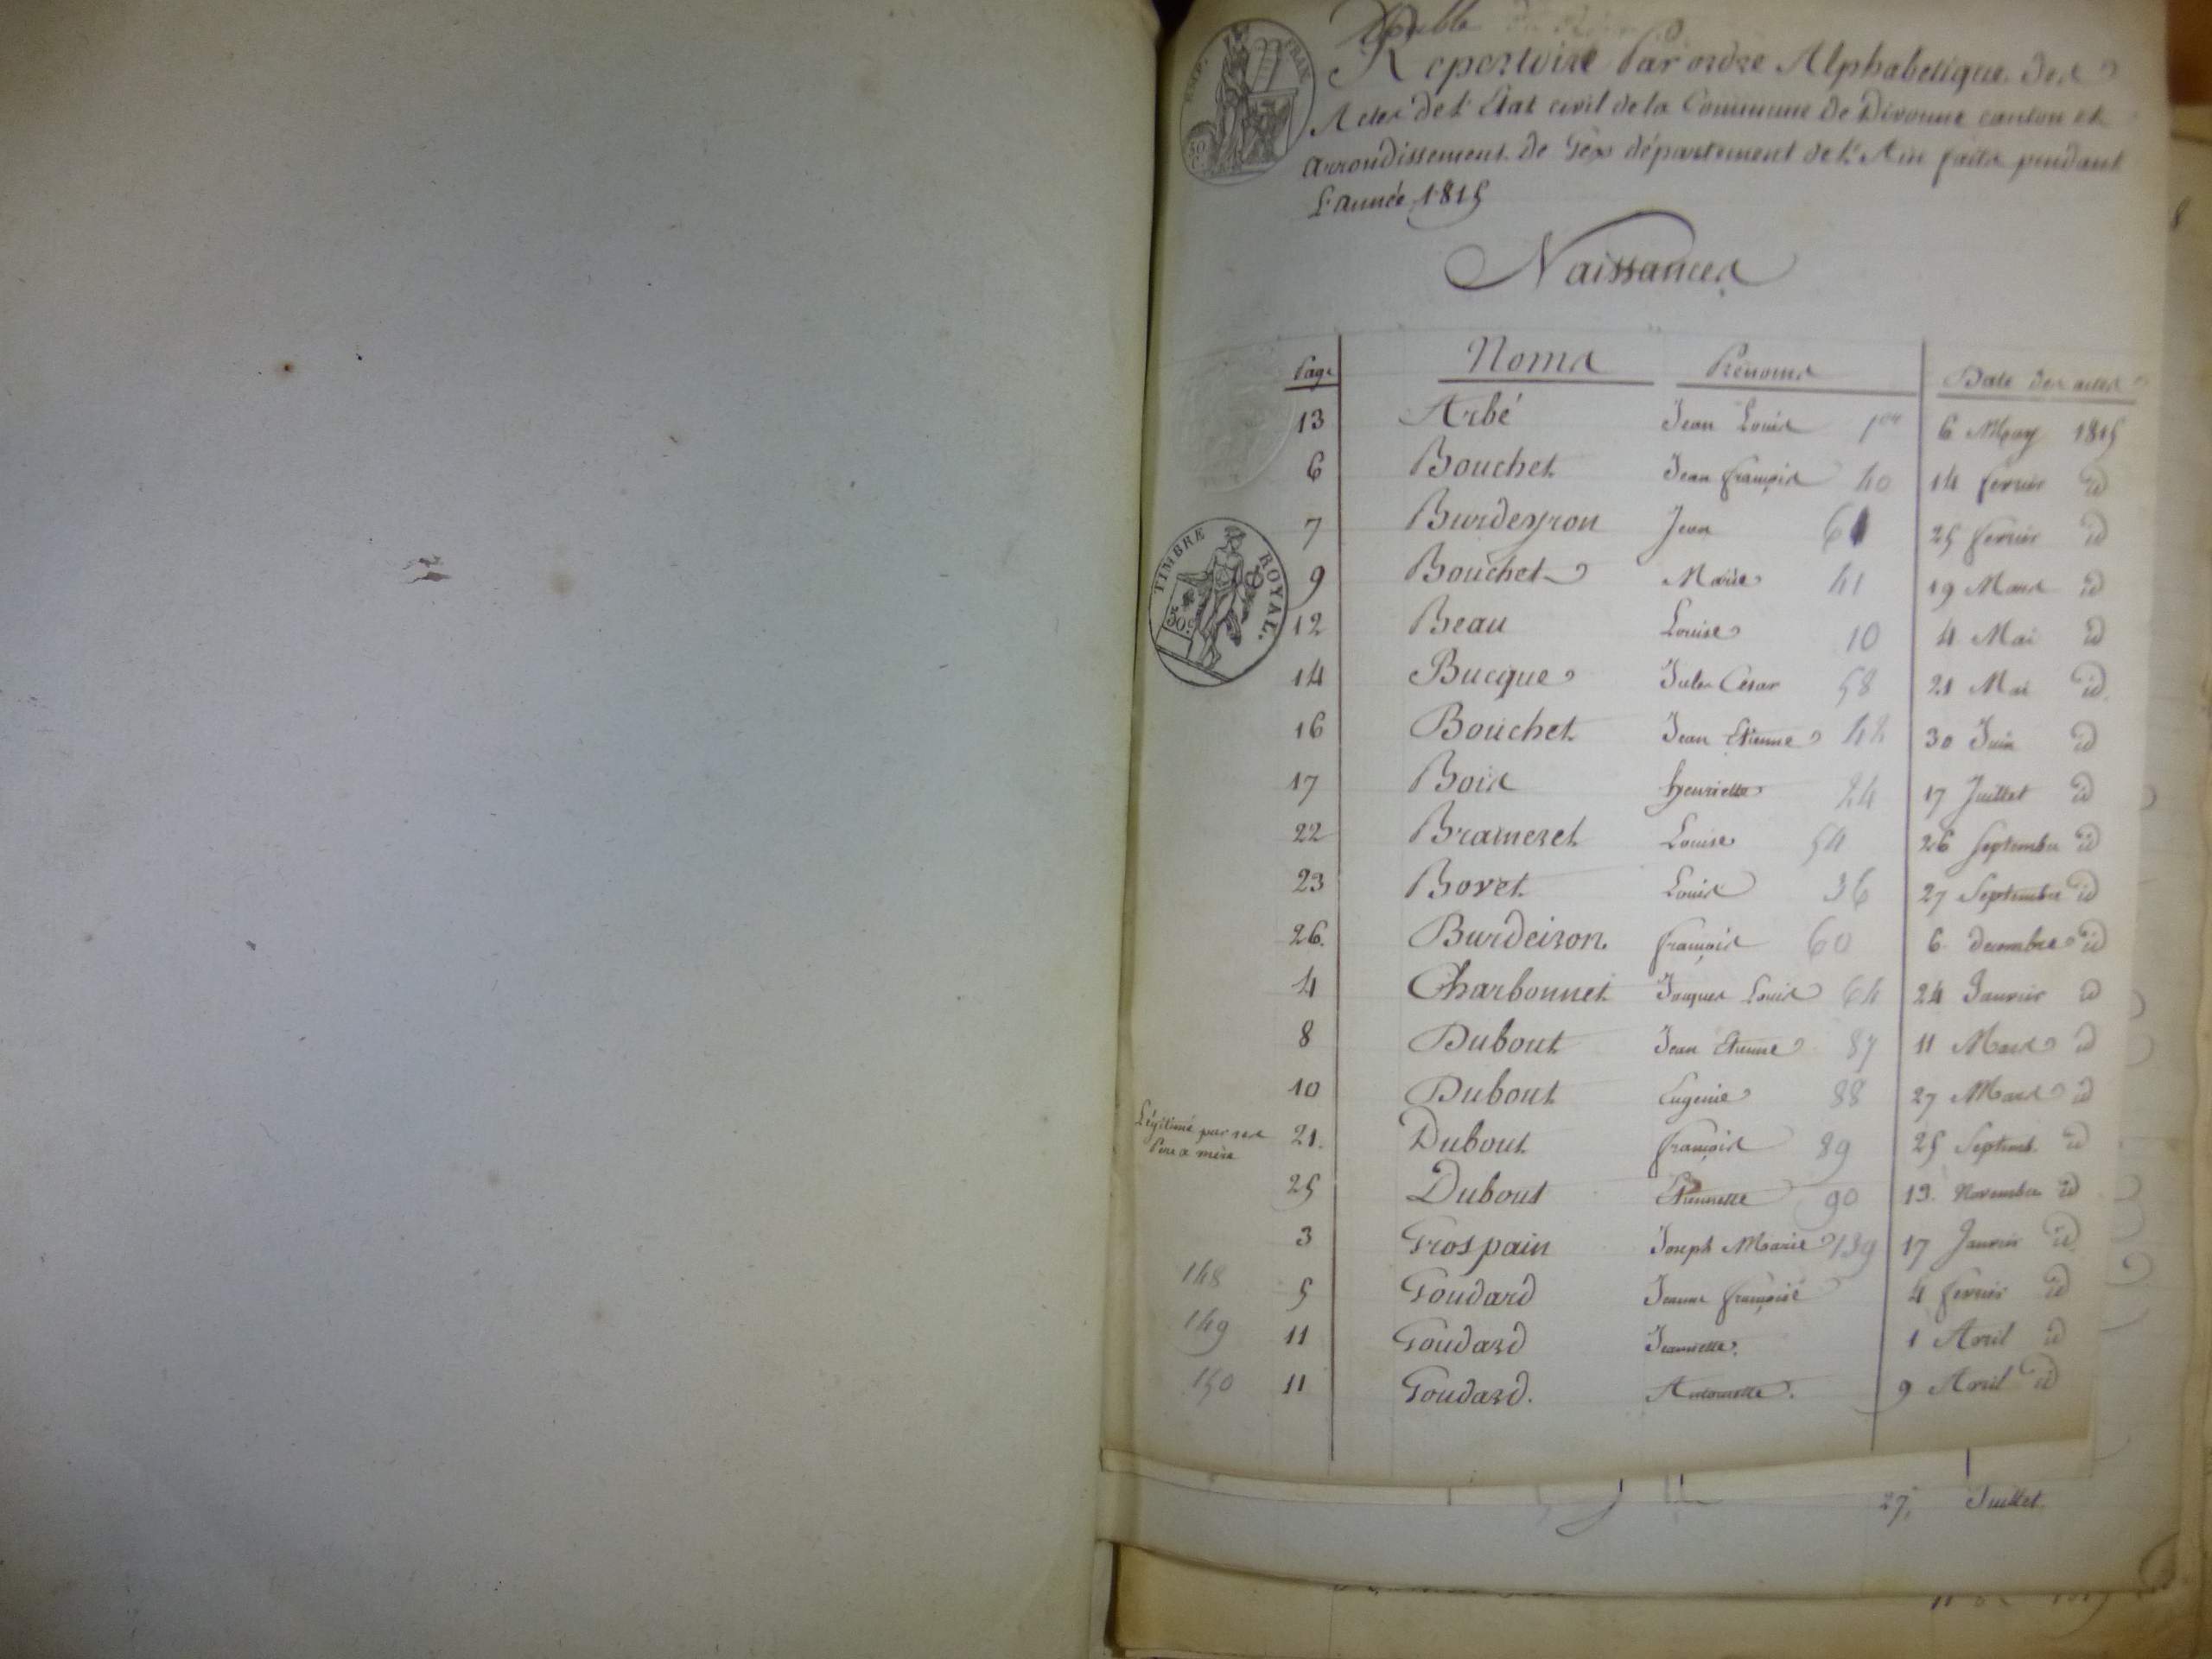 Double
Repertoire Par ordre Alphabetique des
Actes de l'Etat civil de la Commune de Divonne canton et
arrondissement de Gex département de l'Ain faits pendant
L'année 1815
EMP. FRAN.
30 c.
Naissances
Page Noms Prénoms Date des actes
13 Arbé Jean Louis 1er 6 May 1815
6 Bouchet Jean françois 40 14 fevrier id
7 Burdeyron Jean 61 25 fevrier id
9 Bouchet Marie 41 19 Mars id
TIMBRE ROYAL.
30 c.
12 Beau Louise 10 4 Mai id
14 Bucque Jules César 58 21 Mai id
16 Bouchet Jean Etienne 42 30 Juin id
17 Bois henriette 24 17 Juillet id
22 Brameret Louise 54 26 septembre id
23 Bovet Louis 36 27 Septembre id
26. Burdeiron françois 60 6 decembre id
4 Charbonnet Jaques Louis 64 24 Janvier id
8 Dubout Jean Etienne 87 11 Mars id
10 Dubout Eugenie 88 27 Mars id
Légitimé par ses
Pere & mere
21. Dubout françois 89 25 Septemb. id
25 Dubout Etiennette 90 13. Novembre id
3 Grospain Joseph Marie 139 17 Janvier id
148 5 Goudard Jeanne françoise 4 fevrier id
149 11 Goudard Jeannette. 1 Avril id
150 11 Goudard. Antoinette. 9 Avril id
27, Juillet